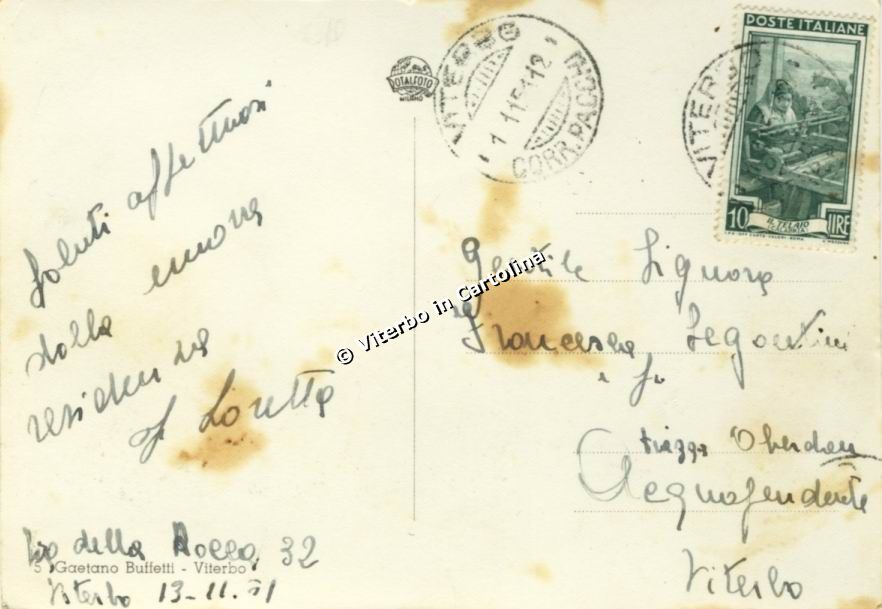 Saluti affettuosi
dalla nuova
residenza
Loretta
Via della Rocca, 32
5 Gaetano Buffetti - Viterbo
Viterbo 13-11-51
TOTALFOTO
MILANO
VITERBO
CORR. PACCHI
VITERBO
POSTE ITALIANE
10 LIRE
IL TELAIO
© Viterbo in Cartolina
Gentile Signora
Francesca Segantini
e fa
Piazza Oberdan
Acquapendente
Viterbo